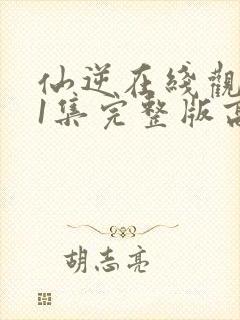 仙逆在綫觀
1集完整版高
胡志亮